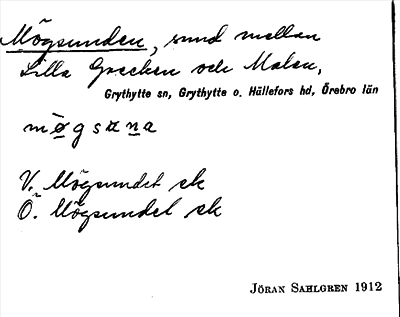 Mögsunden, sund mellan
Lilla Grecken och Malen,
Grythytte sn, Grythytte o. Hällefors hd, Örebro län
V. Mögsundet ek
Ö. Mögsundet ek
JÖRAN SAHLGREN 1912